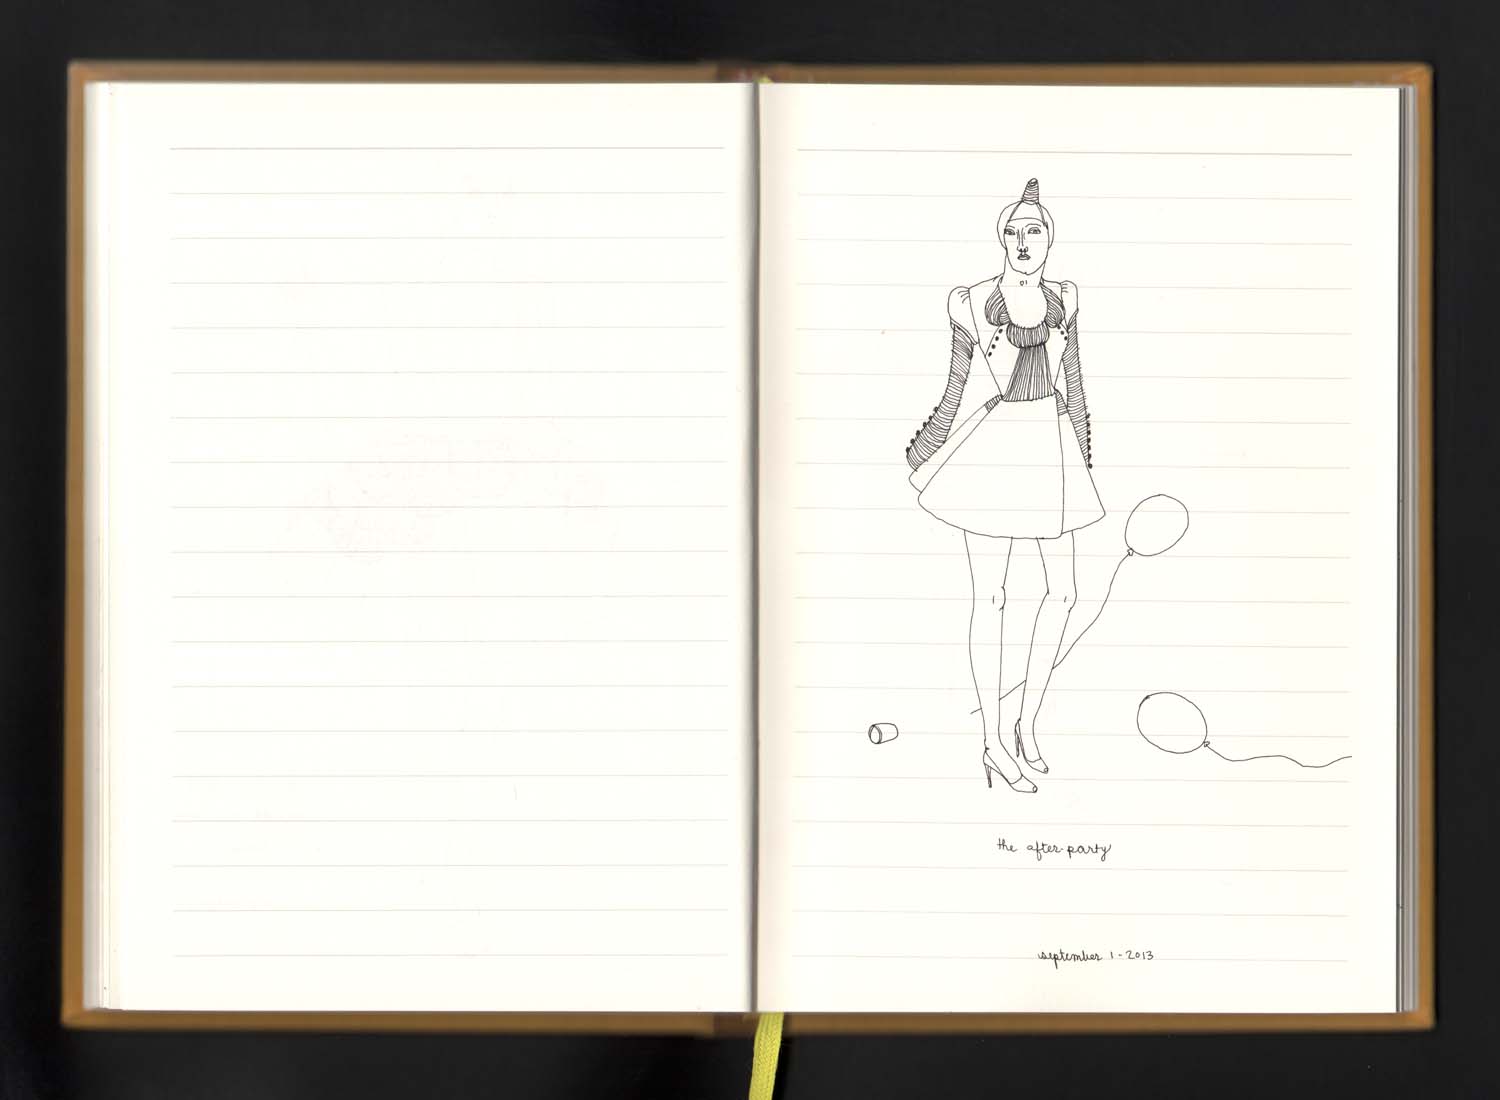 the after-party
september 1-2013